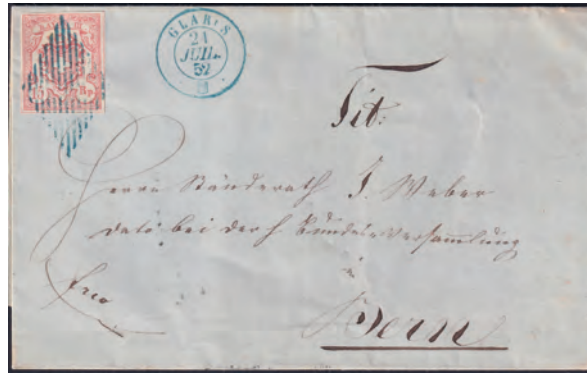 15 Rp.
GLARUS
21
JUIL.
52
Tit:
Herrn Ständerath J. Weber
dato bei der h. Bundesversammlung
frco
Bern